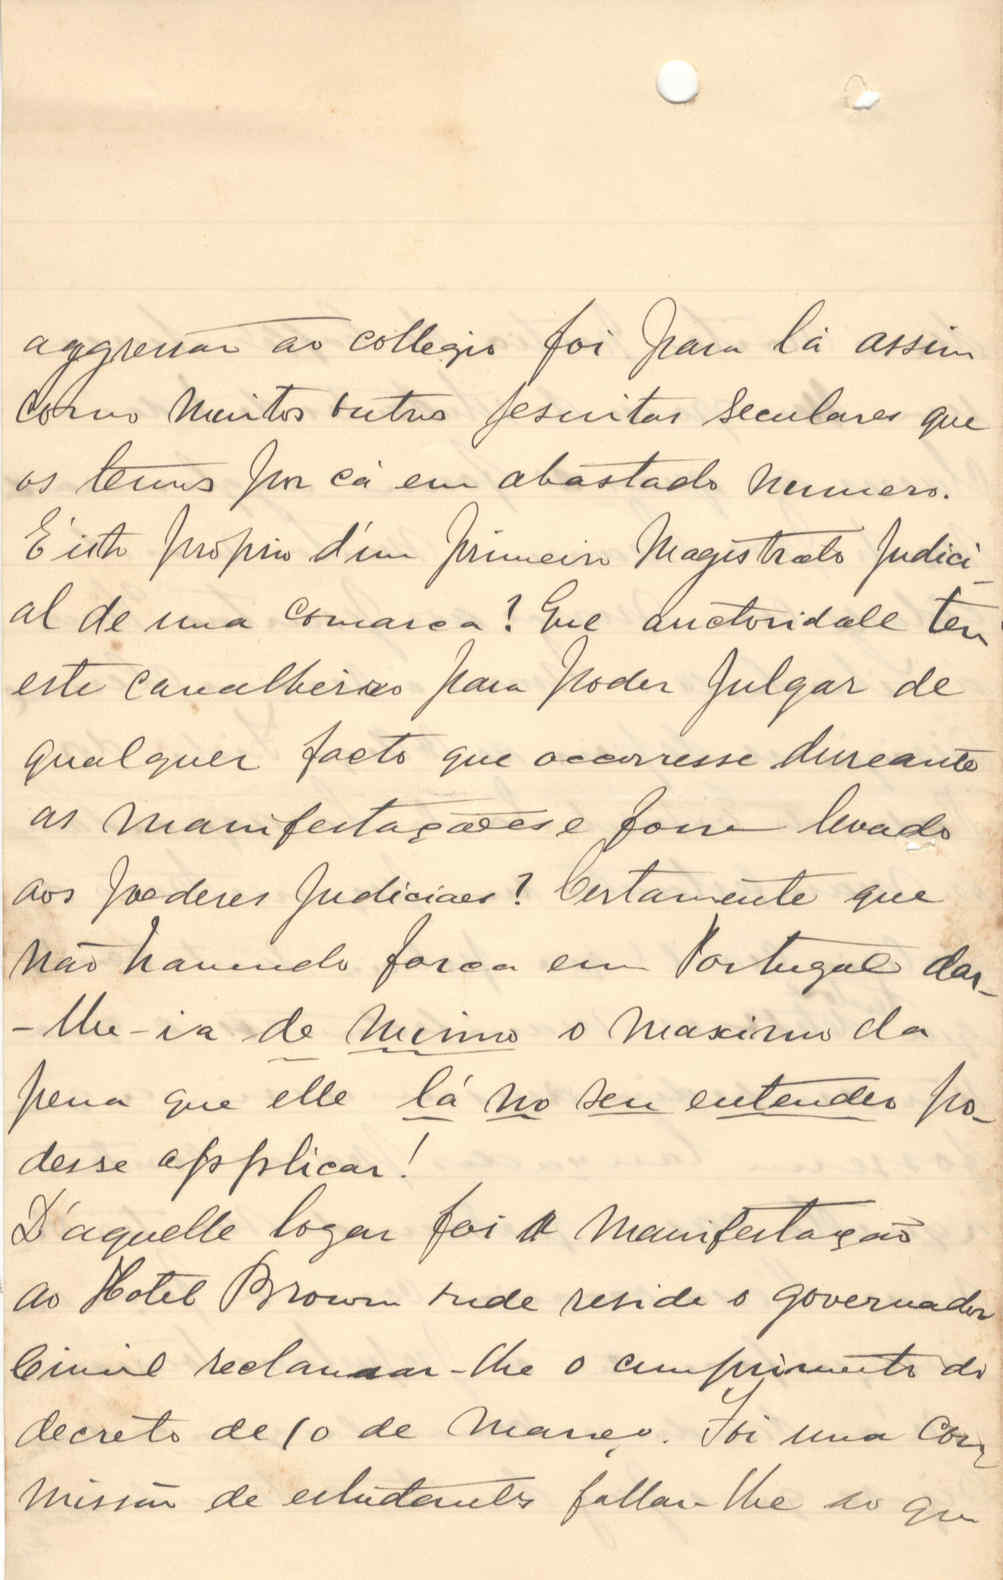 aggressão ao collegio foi para lá assim
como muitos outros jesuitas seculares que
os temos por cá em abastado numero.
É isto proprio d'um primeiro Magistrato Judici-
al de uma comarca? Que auctoridade tem
este cavalheiro para poder julgar de
qualquer facto que occorresse dureante
as manifestaçãoes e fosse levado
aos poderes judiciaes? Certamente que
não havendo forca em Portugal dar-
-lhe-ia de mimo o maximo da
pena que elle lá no seu entender po-
desse applicar!
D'aquelle logar foi a manifestação
ao Hotel Brown onde reside o governador
Civil reclamar-lhe o cumprimento do
decreto de 10 de março. Foi uma com
missão de estudantes fallar-lhe ao que